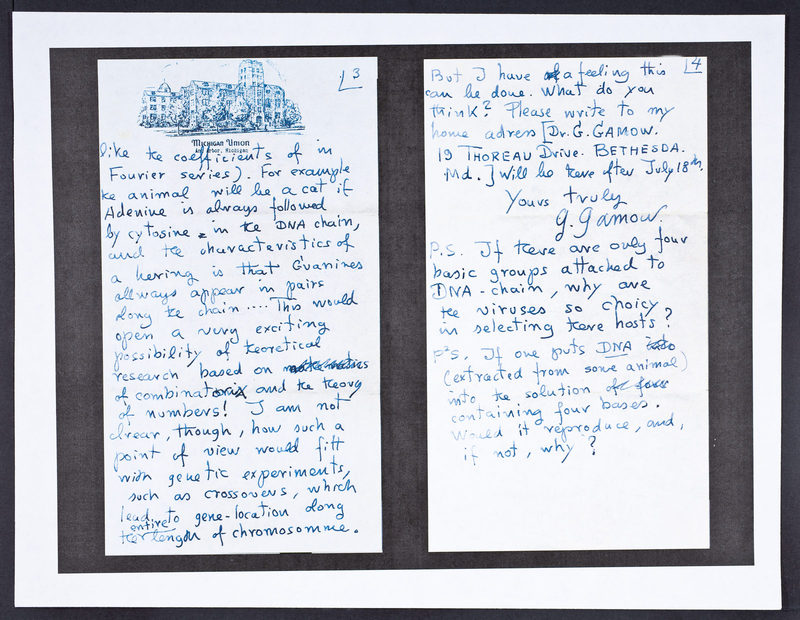 3
MICHIGAN UNION
Ann Arbor, Michigan
like the coefficients of in
Fourier series). For example
the animal will be a cat if
Adenine is always followed
by cytosine in the DNA chain,
and the characteristics of
a hering is that Guanines
allways appear in pairs
along the chain .... This would
open a very exciting
possibility of theoretical
research based on
of combinatorix and the theory
of numbers! I am not
clrear, though, how such a
point of view would fitt
with genetic experiments,
such as crossovers, which
lead to gene-location along
entire
the length of chromosomme.
4
But I have a feeling this
can be done. What do you
think? Please write to my
home adress [Dr. G. GAMOW.
19 THOREAU Drive. BETHESDA.
Md.] Will be there after July 18th.
Yours truly
G. Gamow.
P.S. If there are only four
basic groups attached to
DNA-chain, why are
the viruses so choicy
in selecting there hosts?
P²S. If one puts DNA
(extracted from some animal)
into the solution
containing four bases.
Would it reproduce, and,
if not, why?